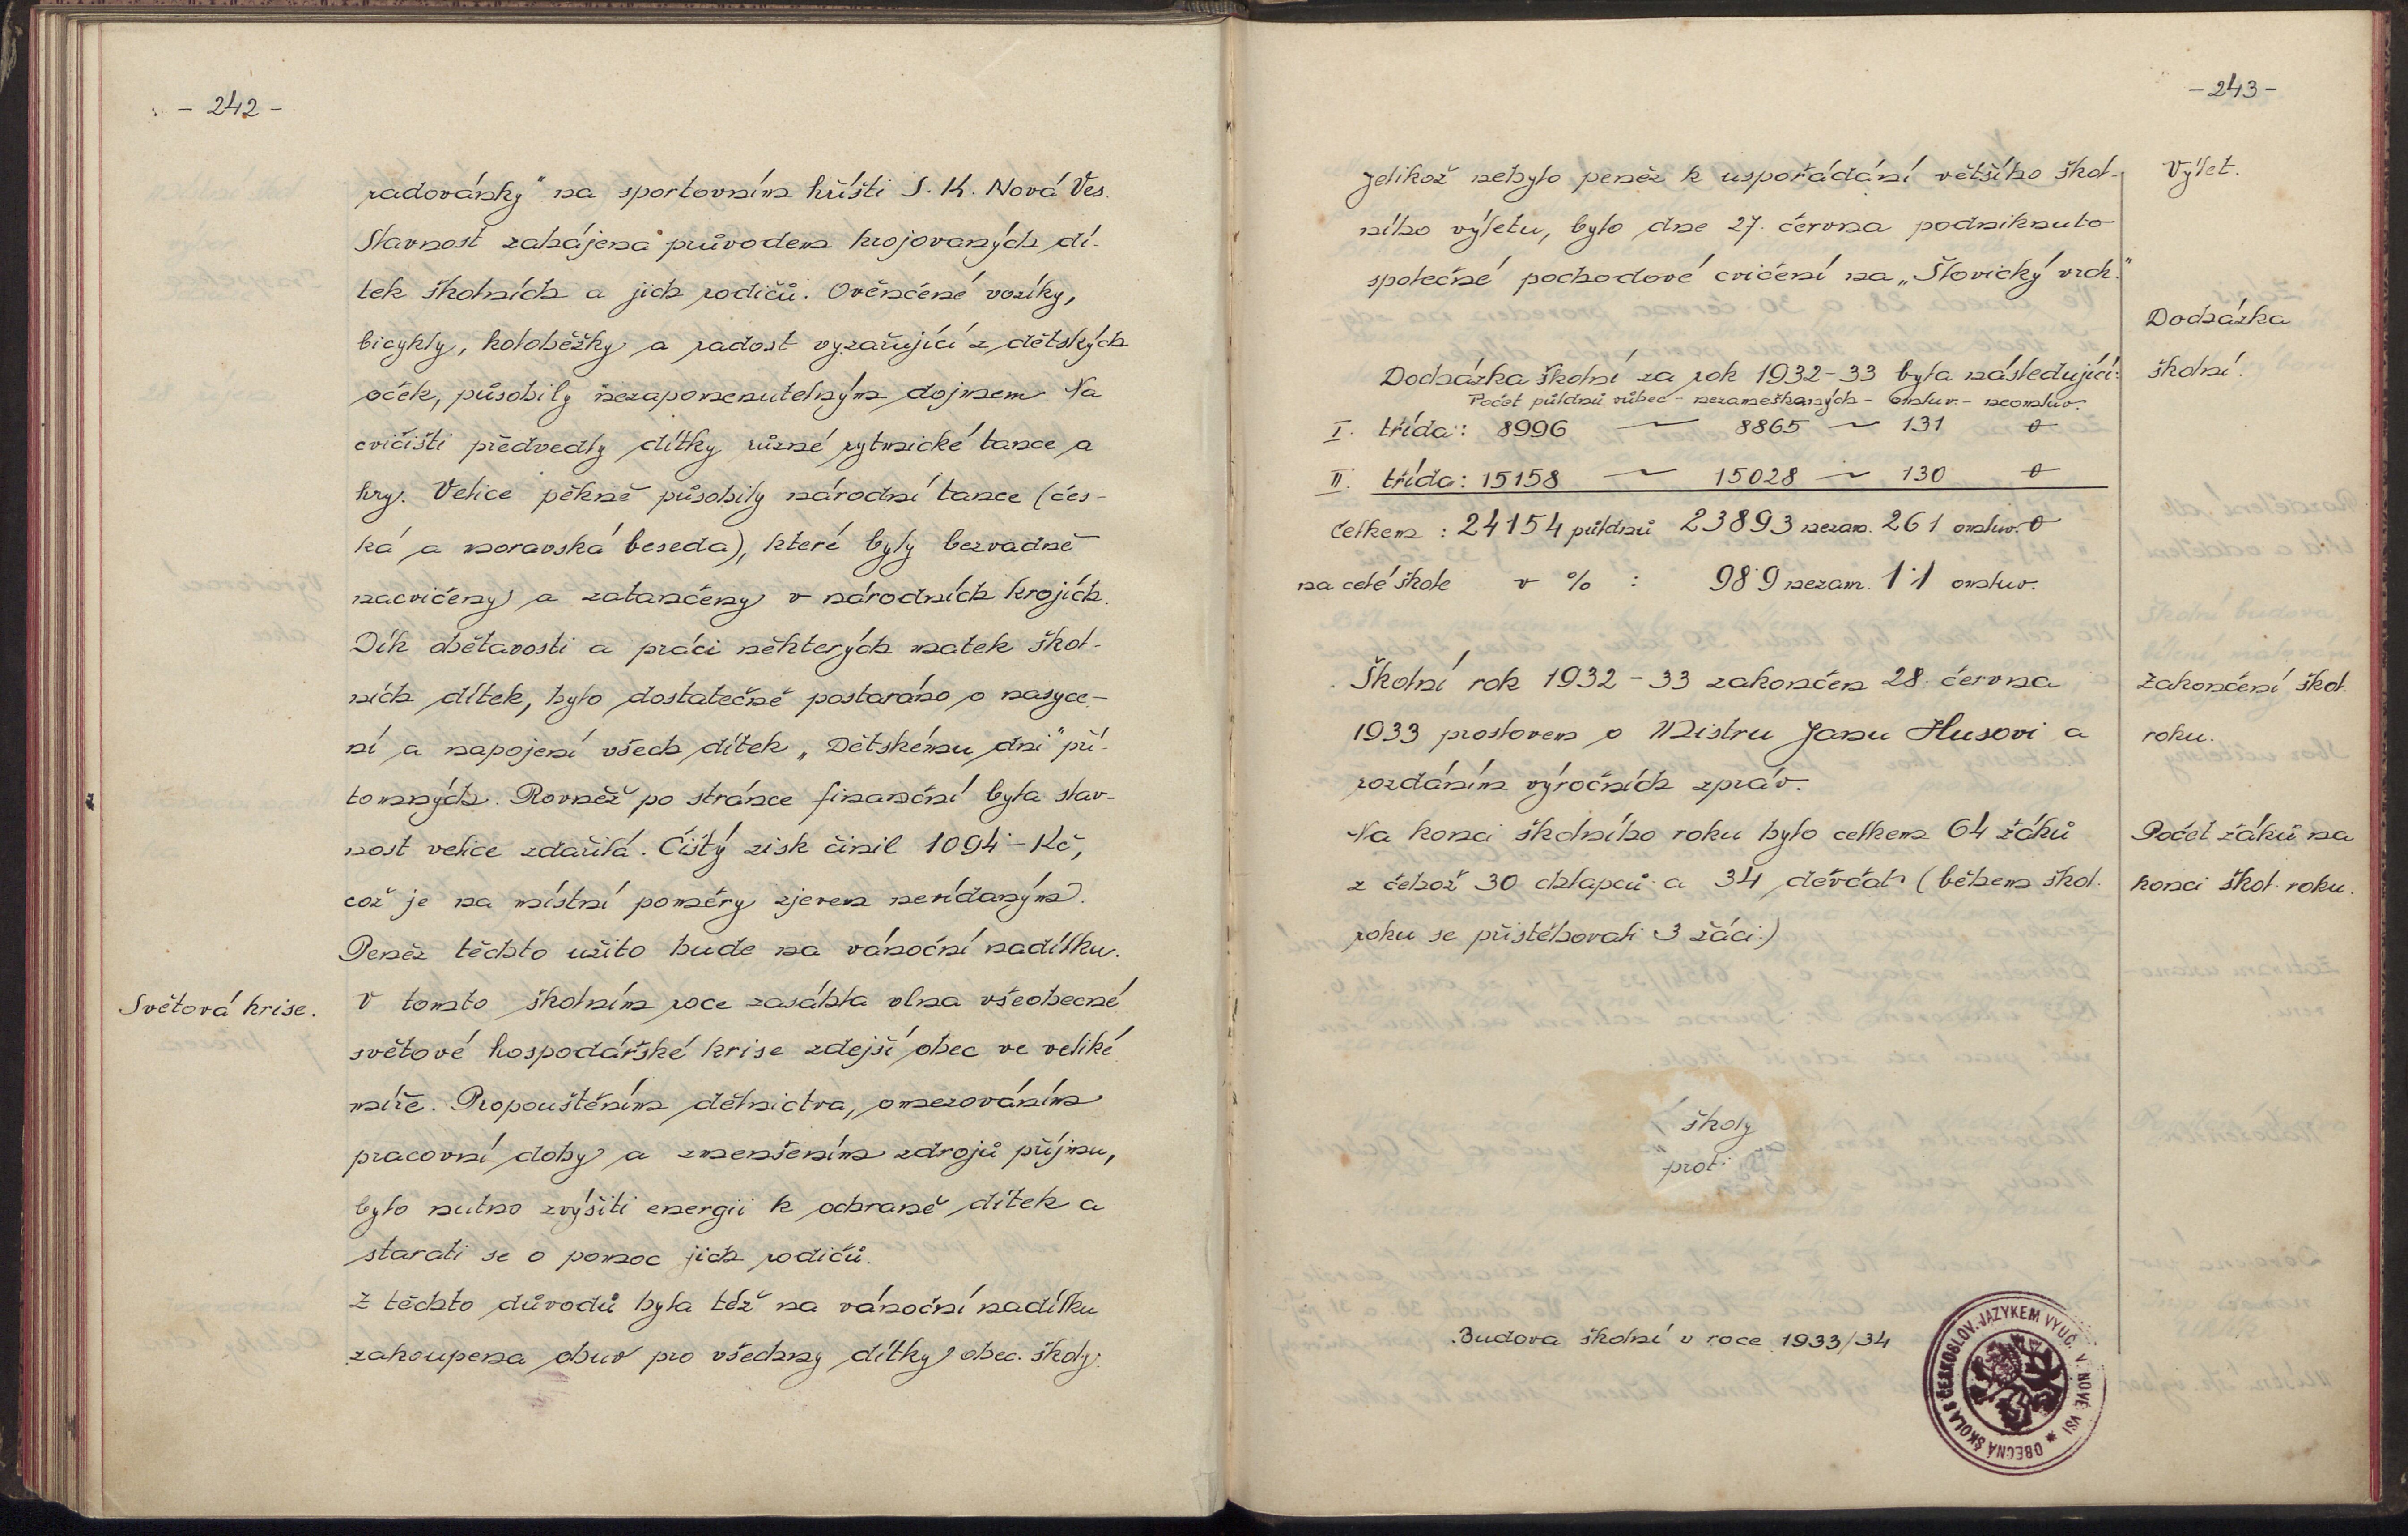 - 242 -
radovánky" na sportovním hřišti S. K. Nová Ves.
Slavnost zahájena průvodem krojovaných dí-
tek školních a jich rodičů. Ověnčené vozíky,
bicykly, koloběžky a radost vyzařující z dětských
oček, působily nezapomenutelným dojmem. Na
cvičišti předvedly dítky různé rytmické tance a
hry. Velice pěkně působily národní tance (čes-
ká a moravská beseda), které byly bezvadně
nacvičeny a zatančeny v národních krojích.
Dík obětavosti a práci některých matek škol-
ních dítek, bylo dostatečně postaráno o nasyce-
ní a napojení všech dítek „Dětskému dni" pří-
tomných. Rovněž po stránce finanční byla slav-
nost velice zdařilá. Čistý zisk činil 1094·- Kč,
což je na místní poměry zjevem nevídaným.
Peněz těchto užito bude na vánoční nadílku.
Světová krise.
V tomto školním roce zasáhla vlna všeobecné
světové hospodářské krise zdejší obec ve veliké
míře. Propouštěním dělnictva, omezováním
pracovní doby a zmenšením zdrojů příjmu,
bylo nutno zvýšiti energii k ochraně dítek a
starati se o pomoc jich rodičů.
Z těchto důvodů byla též na vánoční nadílku
zakoupena obuv pro všechny dítky obec. školy.
- 243 -
Jelikož nebylo peněz k uspořádání většího škol-
Výlet.
ního výletu, bylo dne 27. června podniknuto
společné pochodové cvičení na „Šlovický vrch."
Docházka
školní.
Docházka školní za rok 1932-33 byla následující:
Počet půldnů vůbec - nezameškaných - omluv. - neomluv.
I. třída: 8996 ~ 8865 ~ 131 0
II. třída: 15158 ~ 15028 ~ 130 0
Celkem: 24154 půldnů 23893 nezam. 261 omluv. 0
na celé škole v % : 98·9 nezam. 1·1 omluv.
Školní rok 1932-33 zakončen 28. června
Zakončení škol.
1933 proslovem o Mistru Janu Husovi a
roku.
rozdáním výročních zpráv.
Na konci školního roku bylo celkem 64 žáků
Počet žáků na
z čehož 30 chlapců a 34 děvčat (během škol.
konci škol. roku.
roku se přistěhovali 3 žáci.)
školy
proti
Budova školní v roce 1933/34
OBECNÁ ŠKOLA S ČESKOSLOV. JAZYKEM VYUČ. V NOVÉ VSI *